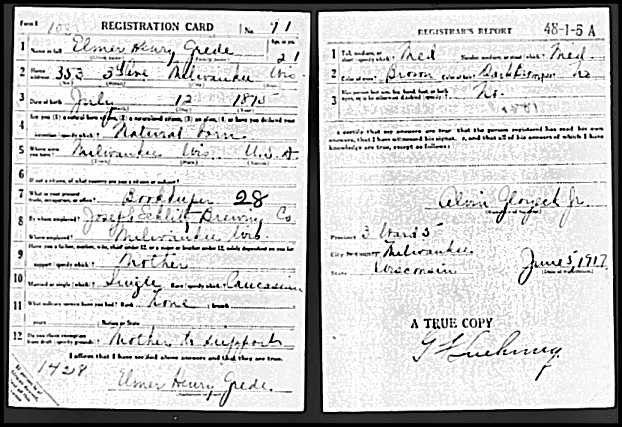 Form 1 REGISTRATION CARD No. 71
1 Name in full Elmer Henry Grede Age, in yrs. 21
2 Home address 353 Milwaukee Wis
3 Date of birth July 12
4 Are you (1) a natural born (2) a naturalized citizen, (3) an alien, (4) or have you declared your
intention (specify which)? Natural born
5 Where were you born? Milwaukee Wis. U.S.A.
6 If not a citizen, of what country are you a citizen or subject?
7 What is your present trade, occupation, or office? Bookkeeper 28
8 By whom employed? Joseph Schlitz Brewing Co
Where employed? Milwaukee Wis
9 Have you a father, mother, wife, child under 12, or a sister or brother under 12, solely dependent on you for
support (specify which)? Mother
10 Married or single (which)? Single Race (specify which)? Caucasian
11 What military service have you had? Rank None ; branch
years ; Nation or State
12 Do you claim exemption from draft (specify grounds)? Mother to support
I affirm that I have verified above answers and that they are true.
1428
Elmer Henry Grede.
REGISTRAR'S REPORT 48-1-5 A
1 Tall, medium, or short (specify which)? Med Slender, medium, or stout (which)? Med.
2 Color of eyes? Brown Color of hair? Bald? no
3 Has person lost arm, leg, hand, foot, or both eyes, or is he otherwise disabled (specify)? No.
I certify that my answers are true, that the person registered has read his own
answers, that I have witnessed his signature, and that all of his answers of which I have
knowledge are true, except as follows:
Alvin Jr.
Precinct 3 Ward 5
City or County Milwaukee
State Wisconsin June 5 1917
(Date of Registration)
A TRUE COPY